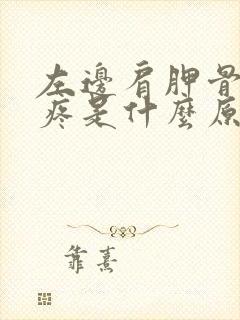 左邊肩胛骨
疼是什麼原
靠熹